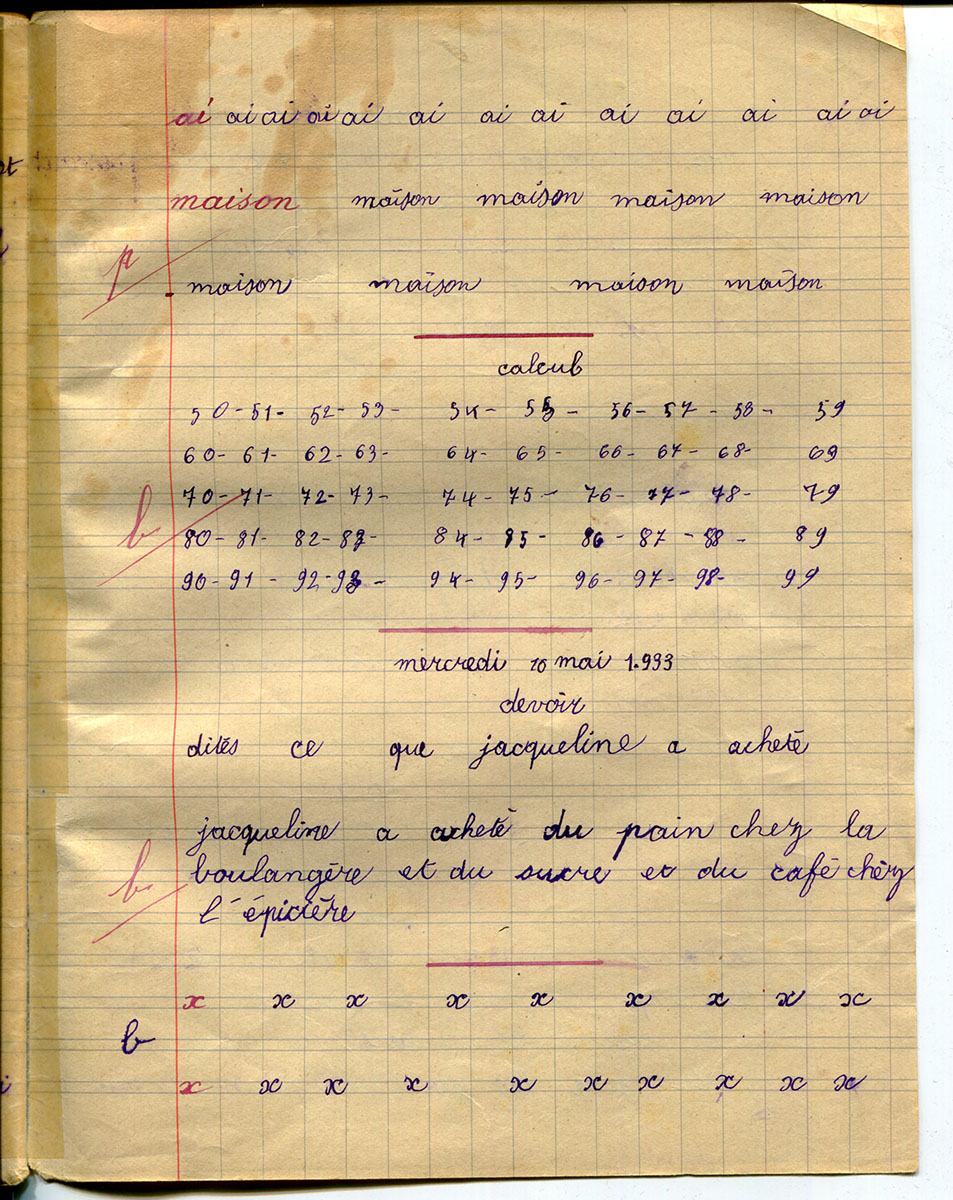 ai ai ai ai ai ai ai ai ai ai ai ai ai
maison maison maison maison maison
p
maison maison maison maison
calcul
50 - 51 - 52 - 53 - 54 - 55 - 56 - 57 - 58 - 59
60 - 61 - 62 - 63 - 64 - 65 - 66 - 67 - 68 - 69
b 70 - 71 - 72 - 73 - 74 - 75 - 76 - 77 - 78 - 79
80 - 81 - 82 - 83 - 84 - 85 - 86 - 87 - 88 - 89
90 - 91 - 92 - 93 - 94 - 95 - 96 - 97 - 98 - 99
mercredi 10 mai 1.933
devoir
dités ce que jacqueline a acheté
jacqueline a acheté du pain chez la
b boulangère et du sucre et du café chèz
l'épicière
x x x x x x x x x
b
x x x x x x x x x x